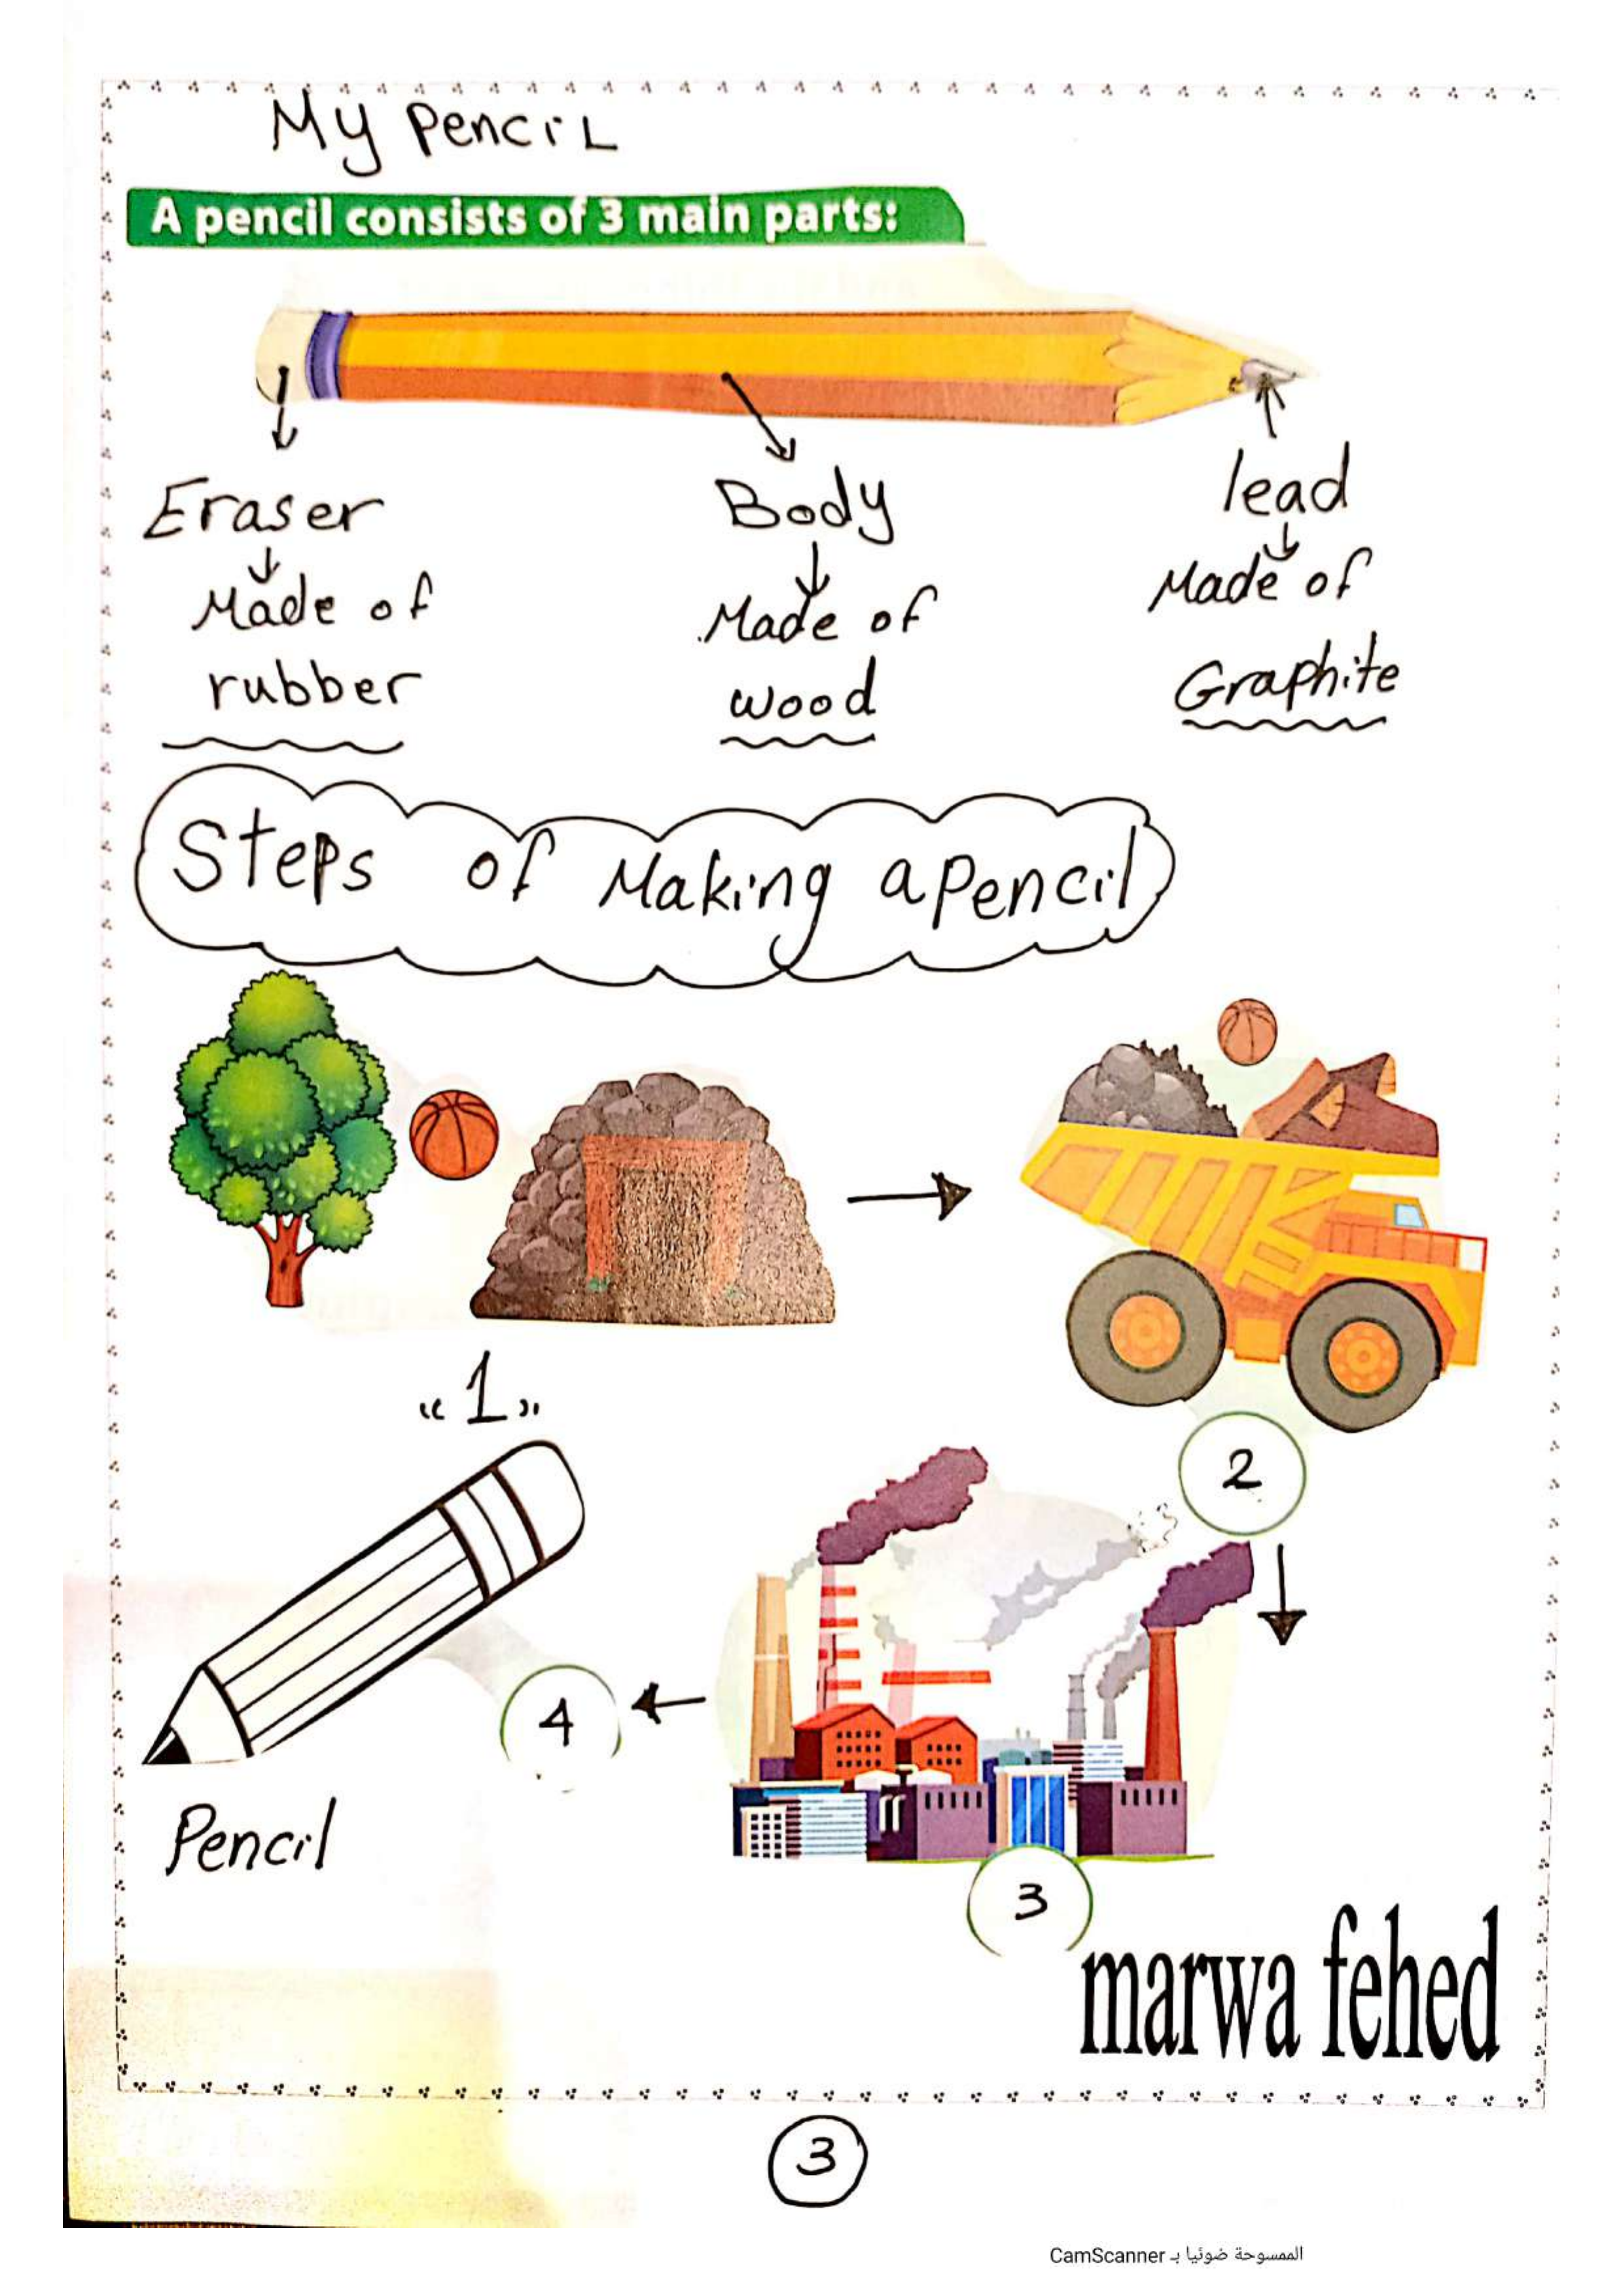 My Pencil
A pencil consists of 3 main parts:
Eraser
Made of
rubber
Body
Made of
wood
lead
Made of
Graphite
Steps of Making a Pencil
"1"
2
4
3
Pencil
marwa fehed
3
الممسوحة ضوئيا بـ CamScanner